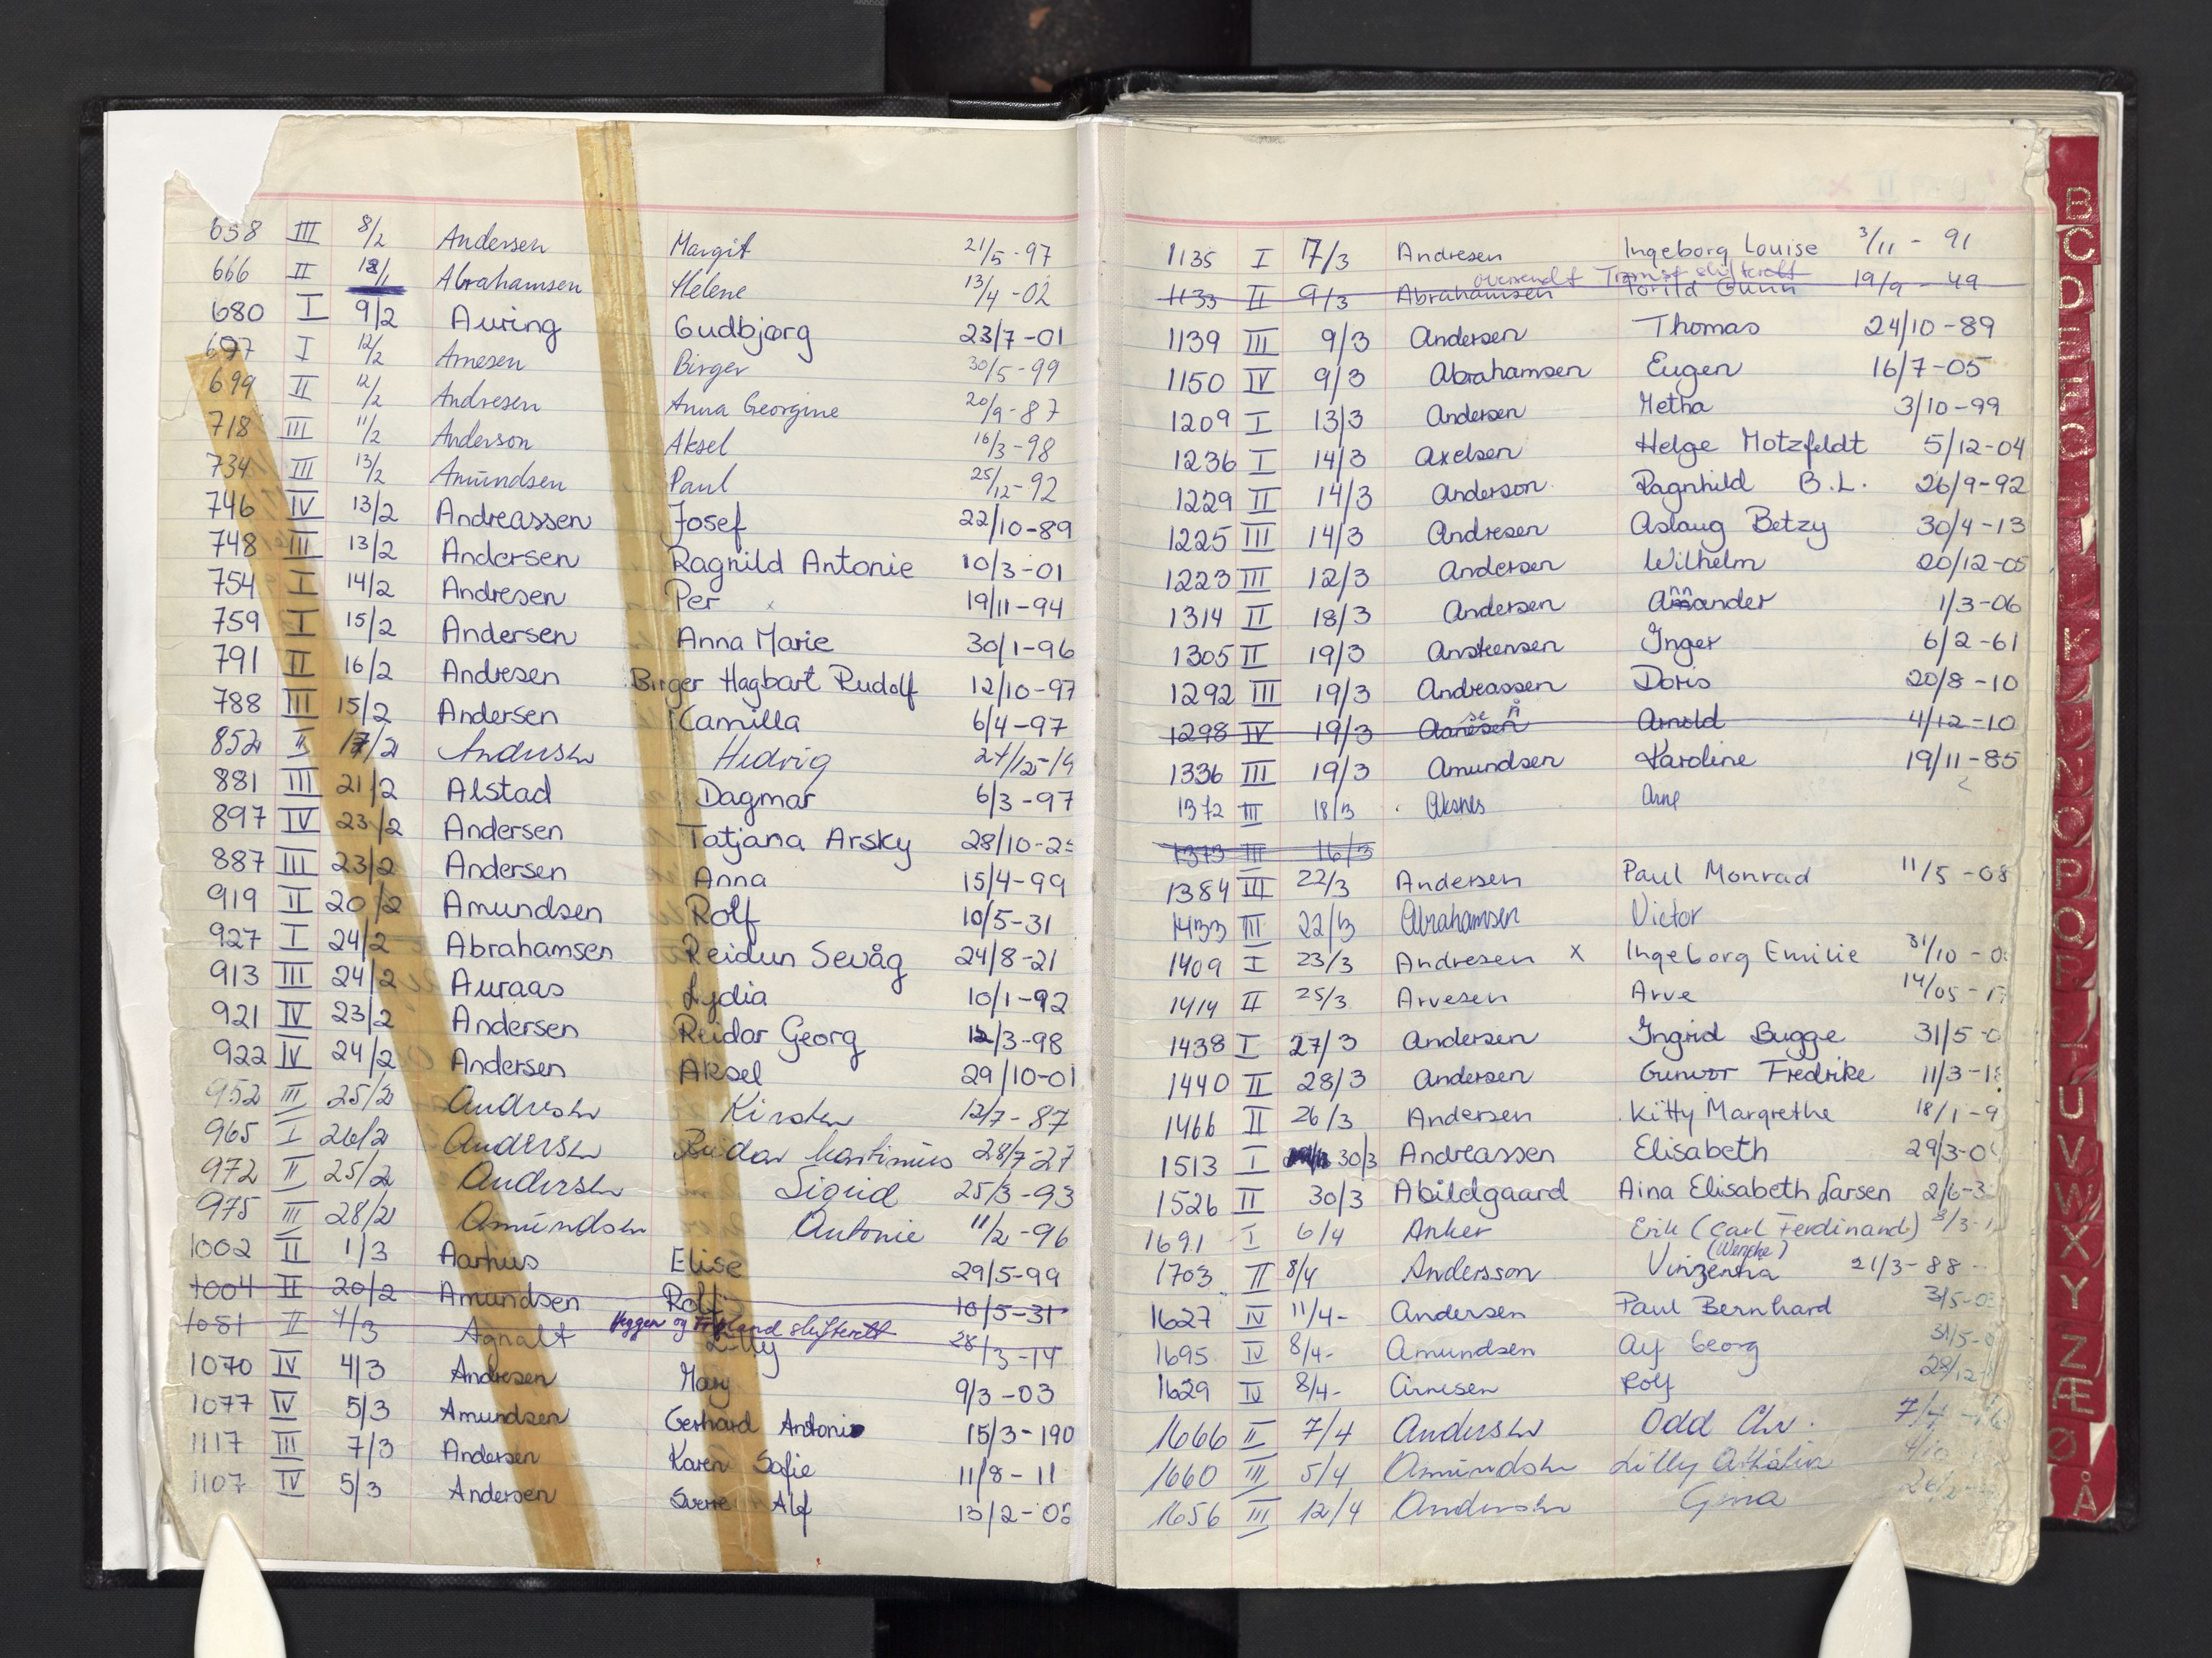 658 III 8/2 Andersen Margit 21/5-97
666 II 12/1 Abrahamsen Helene 13/4-02
680 I 9/2 Auring Gudbjørg 23/7-01
697 I 12/2 Arnesen Birger 30/5-99
699 II 12/2 Andresen Anna Georgine 20/9-87
718 III 11/2 Anderson Aksel 16/3-98
734 III 13/2 Amundsen Paul 25/12-92
746 IV 13/2 Andreassen Josef 22/10-89
748 III 13/2 Andersen Ragnild Antonie 10/3-01
754 I 14/2 Andresen Per x 19/11-94
759 I 15/2 Andersen Anna Marie 30/1-96
791 II 16/2 Andresen Birger Hagbart Rudolf 12/10-97
788 III 15/2 Andersen Kamilla 6/4-97
852 II 17/2 Andersen Hedvig 27/12-19
881 III 21/2 Alstad Dagmar 6/3-97
897 IV 23/2 Andersen Tatjana Arsky 28/10-25
887 III 23/2 Andersen Anna 15/4-99
919 II 20/2 Amundsen Rolf 10/5-31
927 I 24/2 Abrahamsen Reidun Sevåg 24/8-21
913 III 24/2 Auraas Lydia 10/1-92
921 IV 23/2 Andersen Reidar Georg 12/3-98
922 IV 24/2 Andersen Aksel 29/10-01
952 III 25/2 Andresen Kirsten 12/7-87
965 I 26/2 Andersen Reidar Martinius 28/7-27
972 II 25/2 Andersen Sigrid 25/3-93
975 III 28/2 Amundsen Antonie 11/2-96
1002 II 1/3 Aarhus Elise 29/5-99
1004 II 20/2 Amundsen Rolf 10/5-31
Heggen og Frøland skifterett
1051 II 4/3 Agnalt Lilly 28/3-14
1070 IV 4/3 Andresen Mary 9/3-03
1077 IV 5/3 Amundsen Gerhard Antonio 15/3-190
1117 III 7/3 Andersen Karen Sofie 11/8-11
1107 IV 5/3 Andersen Sverre Alf 13/2-02
1135 I 7/3 Andresen Ingeborg Louise 3/11-91
oversendt Tromsø skifterett
1133 II 9/3 Abrahamsen Torild Gunn 19/9-49
1139 III 9/3 Andersen Thomas 24/10-89
1150 IV 9/3 Abrahamsen Eugen 16/7-05
1209 I 13/3 Andersen Metha 3/10-99
1236 I 14/3 Axelsen Helge Motzfeldt 5/12-04
1229 II 14/3 Anderson Ragnhild B.L. 26/9-92
1225 III 14/3 Andresen Aslaug Betzy 30/4-13
1223 III 12/3 Andersen Wilhelm 20/12-05
1314 II 18/3 Andersen Amander 1/3-06
1305 II 19/3 Anstensen Inger 6/2-61
1292 III 19/3 Andreassen Doris 20/8-10
1298 IV 19/3 Aanesen Arnold 4/12-10
1336 III 19/3 Amundsen Karoline 19/11-85
1372 III 18/3 Aksnes Arne
1373 III 16/3
1384 III 22/3 Andersen Paul Monrad 11/5-08
1433 III 22/3 Abrahamsen Victor
1409 I 23/3 Andresen x Ingeborg Emilie 31/10-0
1414 II 25/3 Arvesen Arve 14/05-17
1438 I 27/3 Andersen Ingrid Bugge 31/5-0
1440 II 28/3 Andersen Gunvor Fredrike 11/3-18
1466 II 26/3 Andersen Kitty Margrethe 18/1-9
1513 I 30/3 Andreassen Elisabeth 29/3-0
1526 II 30/3 Abildgaard Aina Elisabeth Larsen 2/6-3
1691 I 6/4 Anker Erik (Carl Ferdinand) 8/3-1
(Wenche)
1703 II 8/4 Andersson Vinzenha 21/3-88
1627 IV 11/4- Andersen Paul Bernhard 3/5-03
1695 IV 8/4- Amundsen Alf Georg 31/5-0
1629 IV 8/4- Arnesen Rolf 28/12
1666 II 7/4 Andersen Odd Chr. 7/4
1660 III 5/4 Amundsen Lilly
1656 III 12/4 Andersen Gina
B
C
D
E
F
G
I
K
N
O
P
Q
R
T
U
V
W
X
Y
Z
Æ
Ø
Å